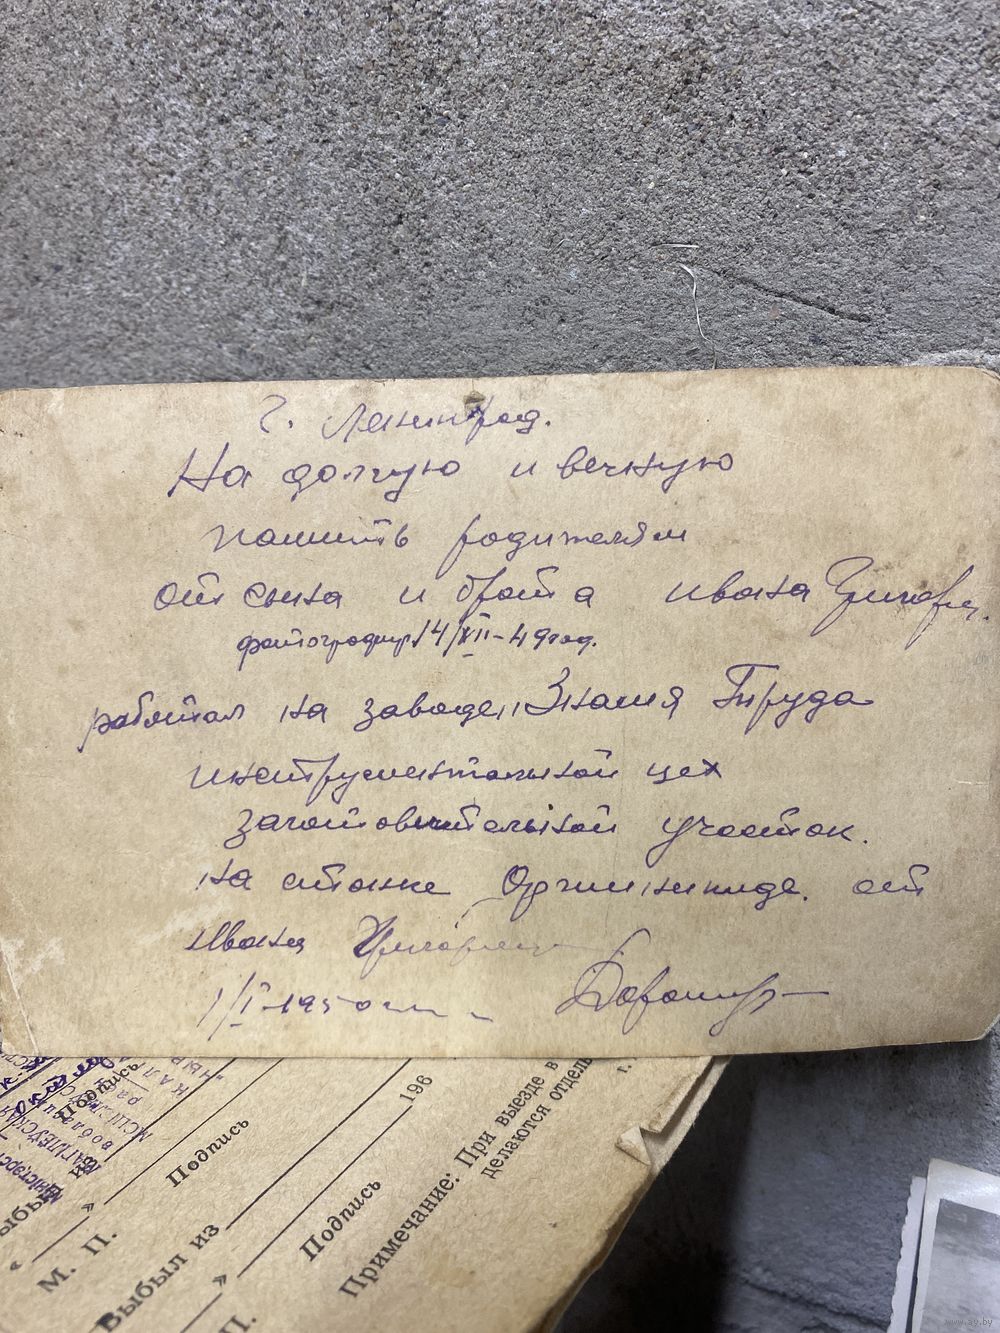 г. Ленинград.
На долгую и вечную
память родителям
от сына и брата Ивана Григорь.
фотографир. 14/XII-49 год.
работал на заводе „Знамя Труда
инструментальной цех
заготовительной участок.
на станке от
Ивана
1/I-195
Подпись
196
Подпись
Выбыл из
« »
М. П.
Подпись
Выбыл из
»
П.
Примечание: При выезде в
делаются отдель
г.
www.ay.by